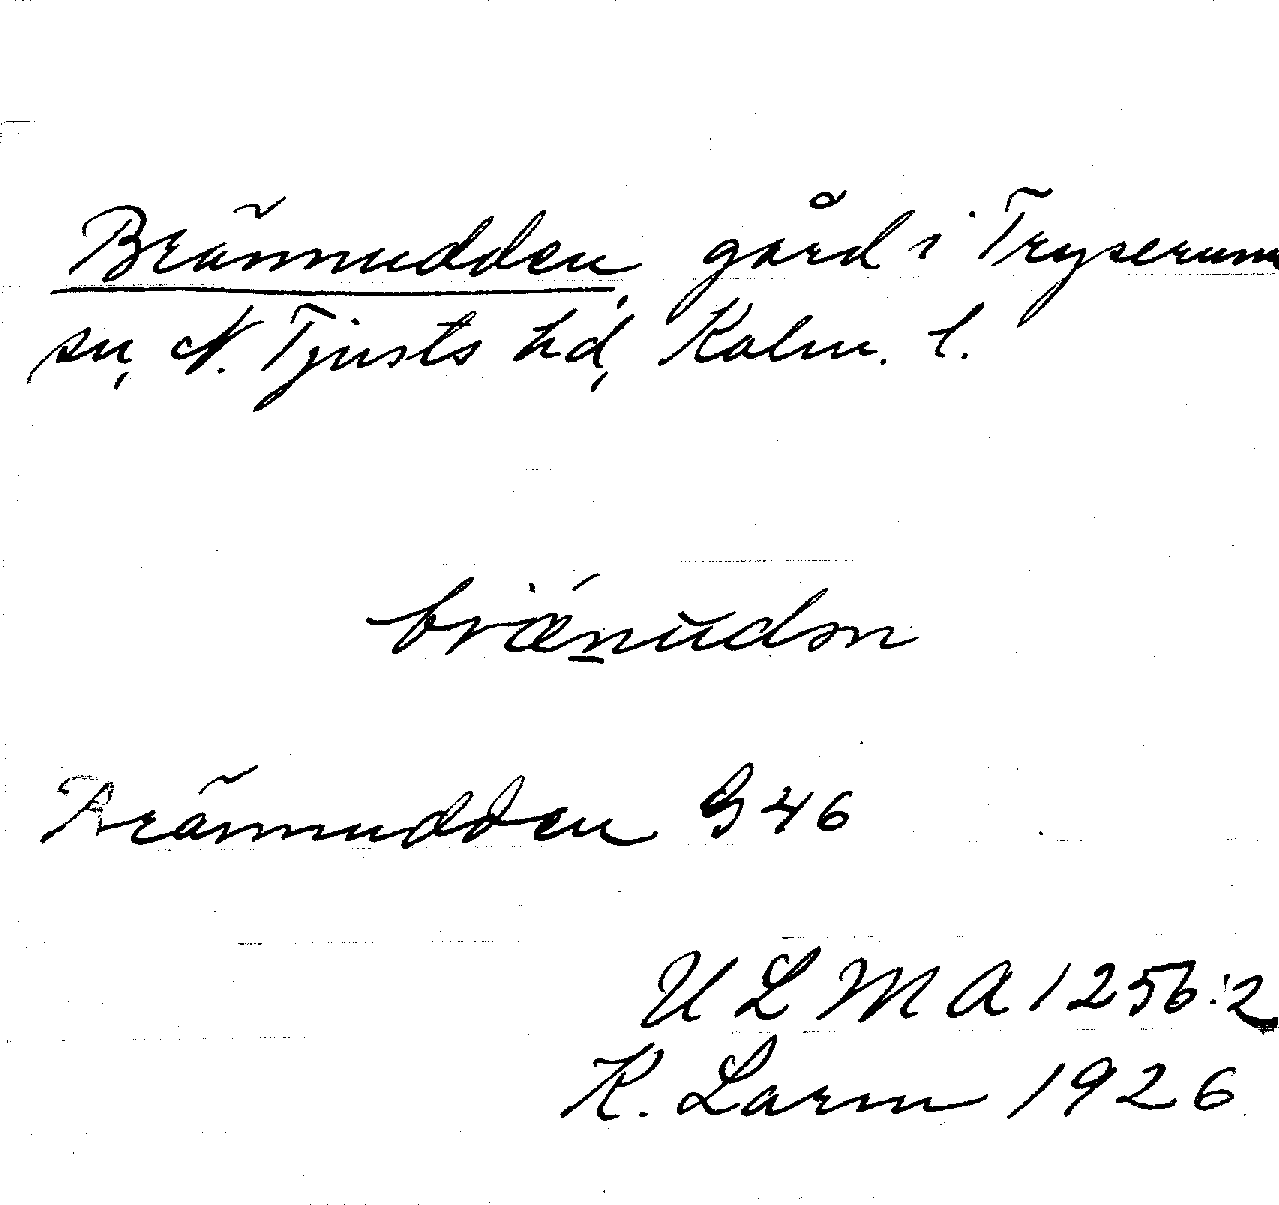 Brännudden, gård i Tryserum
sn, N. Tjusts hd, Kalm. l.
bränudṇ
Brännudden G 46
ULMA 1256:2
K. Larm 1926